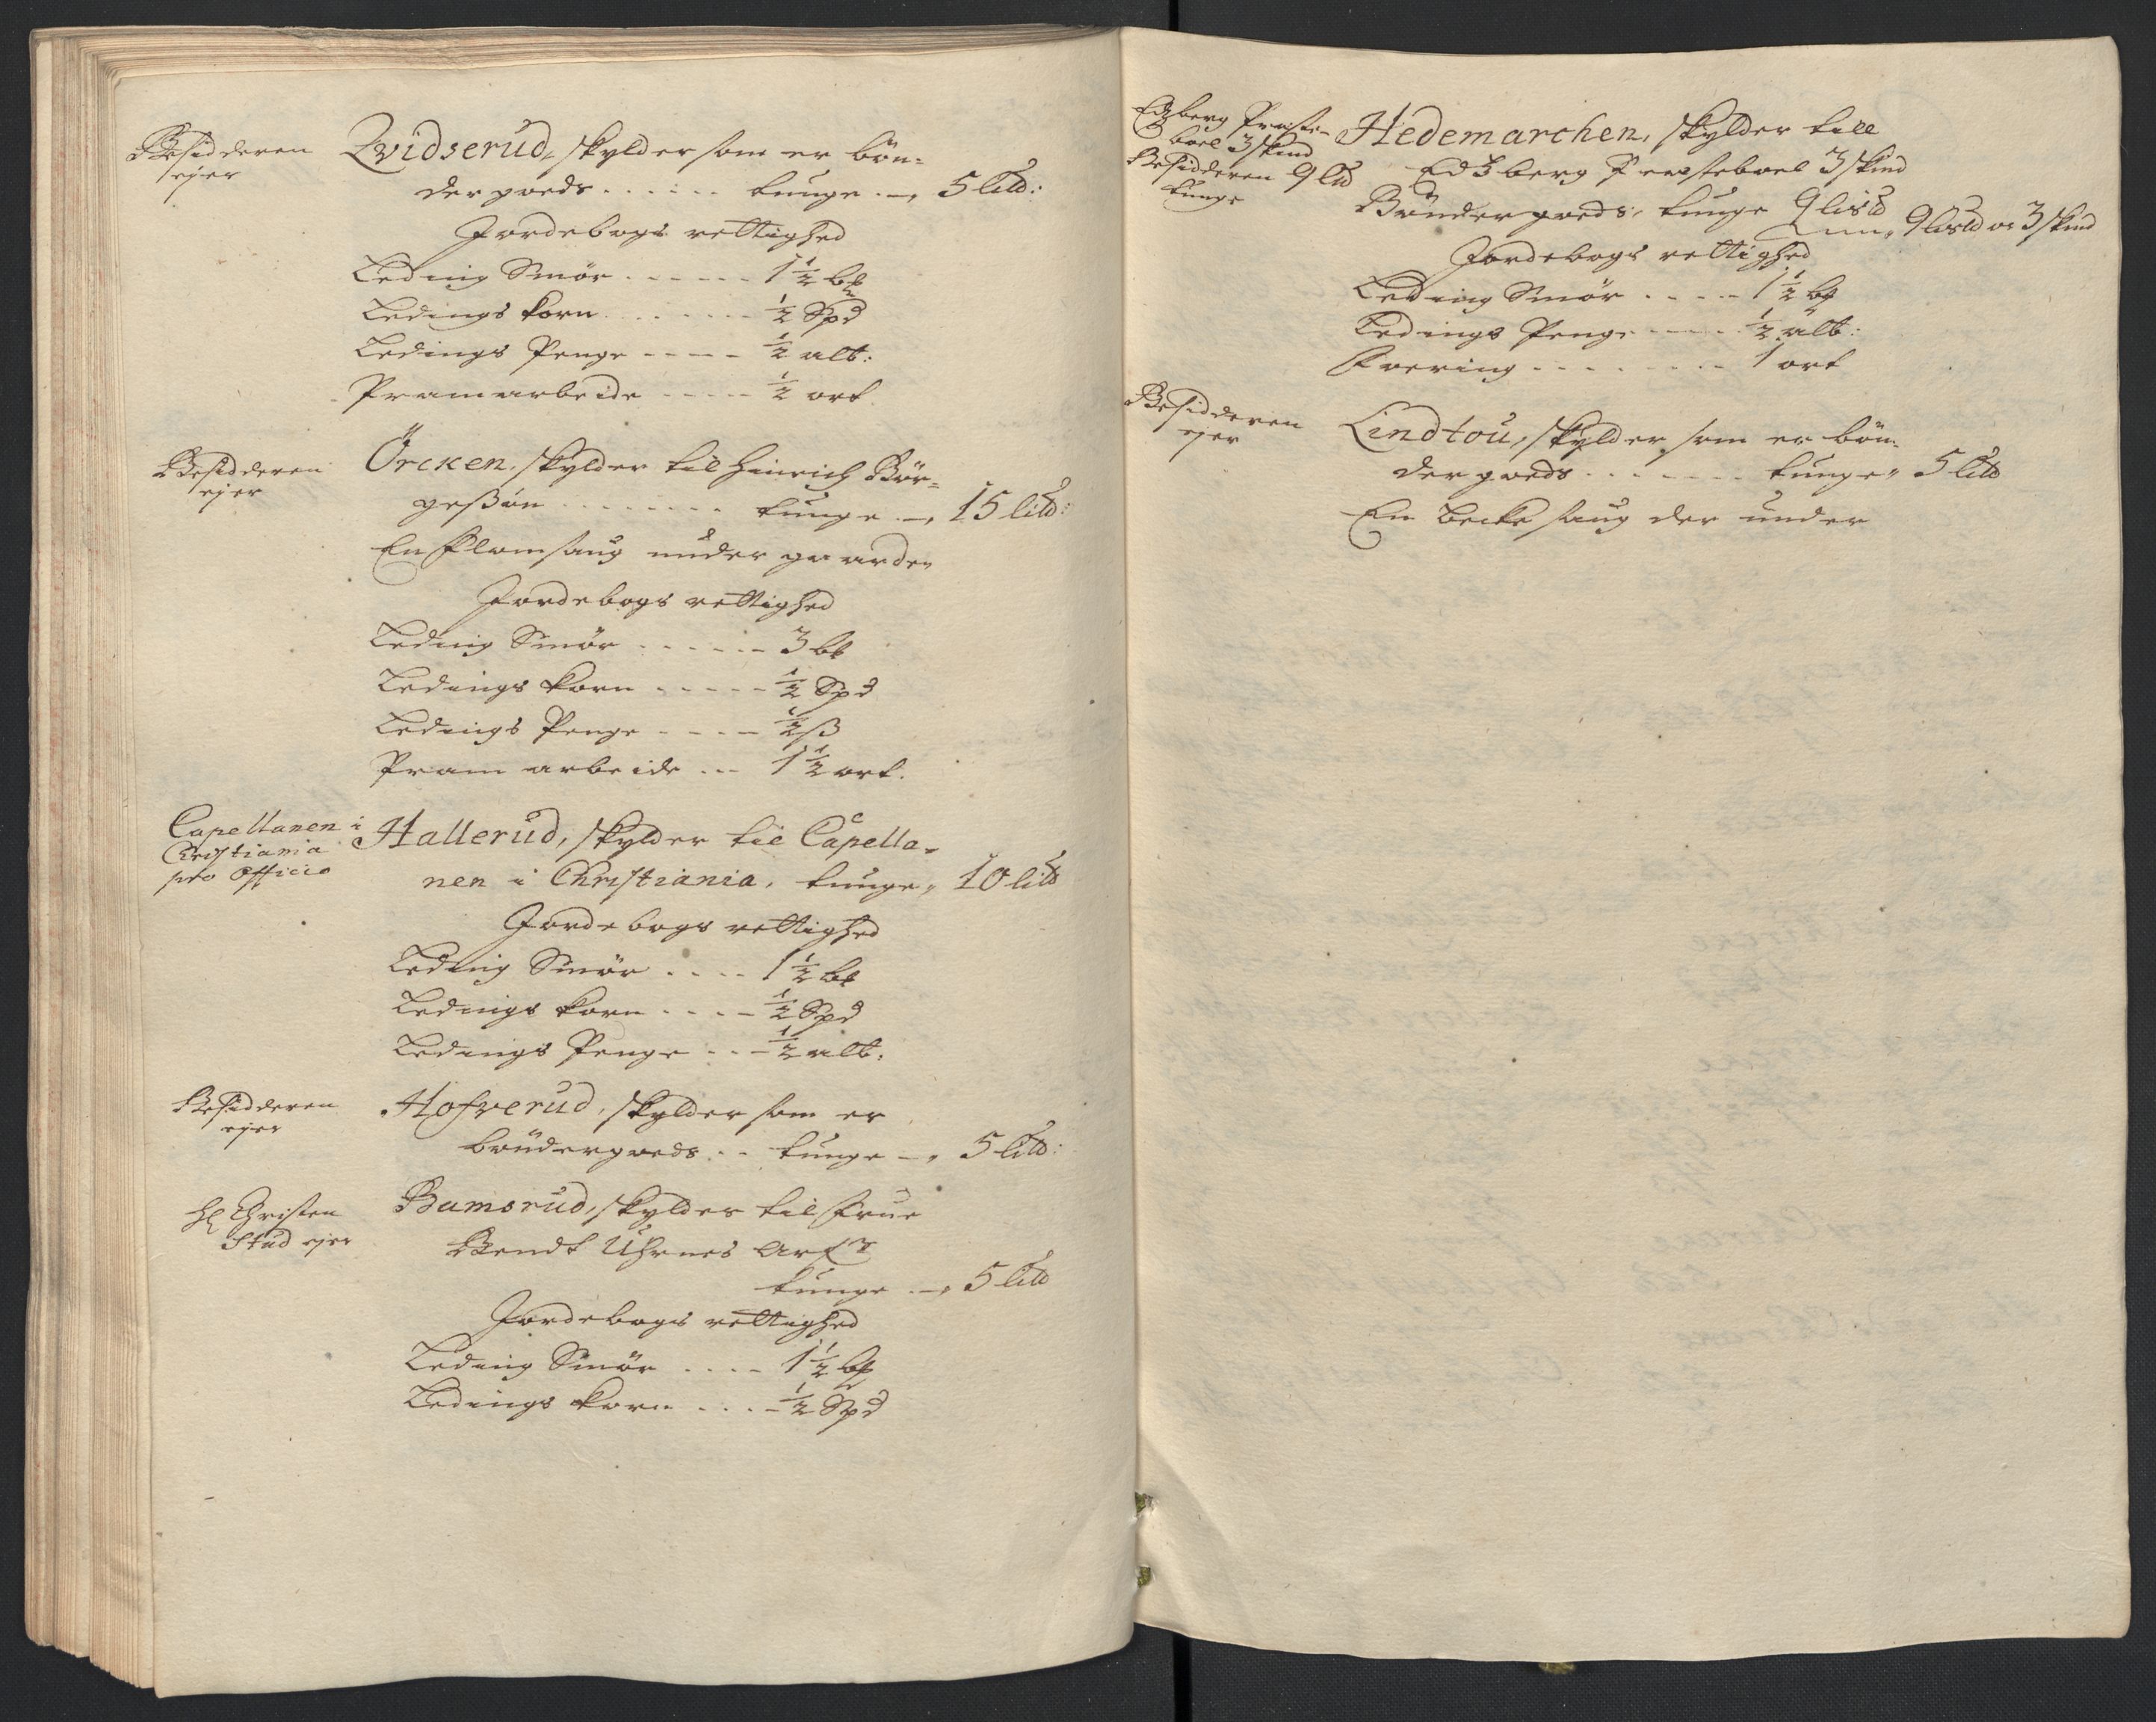 Besidderen
ejer
Qvidserud, skylder som er bøn-
der goeds . . . . . . tunge . — 5 lild:
Jordebogs rettighed
Leding Smør . . . . . . 1 1/2 bk
Ledings korn . . . . . . 1/2 Spd
Ledings Penge - - - - 1/2 alb:
Pramarbeide - - - - - 1/2 ort
Besidderen
ejer
Örcken, skylder til Hinrich Bör-
geßøn . . . . . . . . tunge . — 15 lild:
En flomsaug under gaarden
Jordebogs rettighed
Leding Smør . . . . . . 3 bk
Ledings korn - - - - - 1/2 Spd
Ledings Penge - - - - 1/2 ß
Pram arbeide . . . 1 1/2 ort.
Capellanen i
Christiania
pro Officio
Hallerud, skylder til Capella-
nen i Christiania, tunge „ 10 lild
Jordebogs rettighed
Leding Smør . . . . 1 1/2 bk
Ledings korn . . . . 1/2 Spd
Ledings Penge . . . 1/2 alb:
Besidderen
ejer
Hofverud, skylder som er
bøndergoeds . . tunge — „ 5 lild:
Hr Christen
Stud ejer
Bamsrud, skylder til Frue
Bendt Uhrnes Arf:r
tunge . — „ 5 lild
Jordebogs rettighed
Leding Smør . . . . 1 1/2 bk
Ledings korn . . . . 1/2 Spd
Edzberg Preste-
boel 3 skind
Besidderen 9 lld
tunge
Hedemarchen, skylder till
Edzberg Præsteboel 3 skind
Bønder goeds, tunge 9 lisld
9 lisld oc 3 skind
Jordebogs rettighed
Leding Smør . . . . 1 1/2 bk
Ledings Penge - - - - 1/2 alb:
Foering . . . . . . . . 1 ort
Besidderen
ejer
Lindtou, skylder som er bøn-
der goeds . . . . . . . tunge „ 5 lild
En becke saug der under